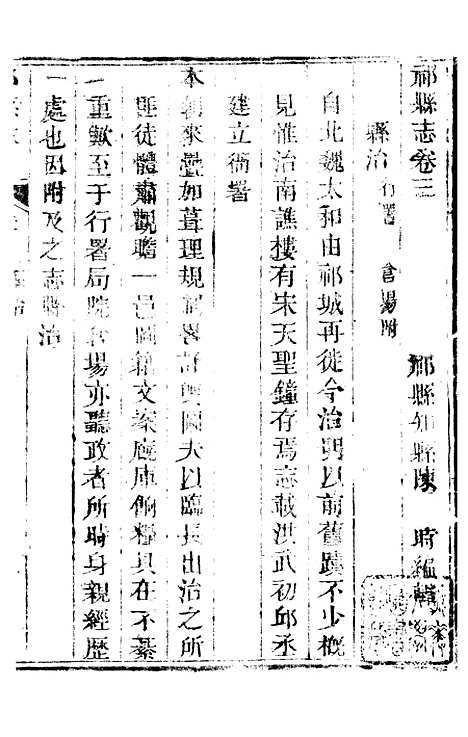 祁縣志卷三
祁縣知縣陳　時纂輯
縣治　行署　倉場附
自北魏太和由祁城再徙今治異以前舊蹟不少概
見惟治南譙樓有宋天聖鐘存焉志載洪武初邱丞
建立衙署
本朝來疊加葺理規制畧訏輿圖夫以臨長出治之所
匪徒體肅觀瞻一邑圖籍文案廒庫餉糈具在不綦
重歟至于行署局院倉場亦聽政者所時身親經歷
一處也因附及之志縣治